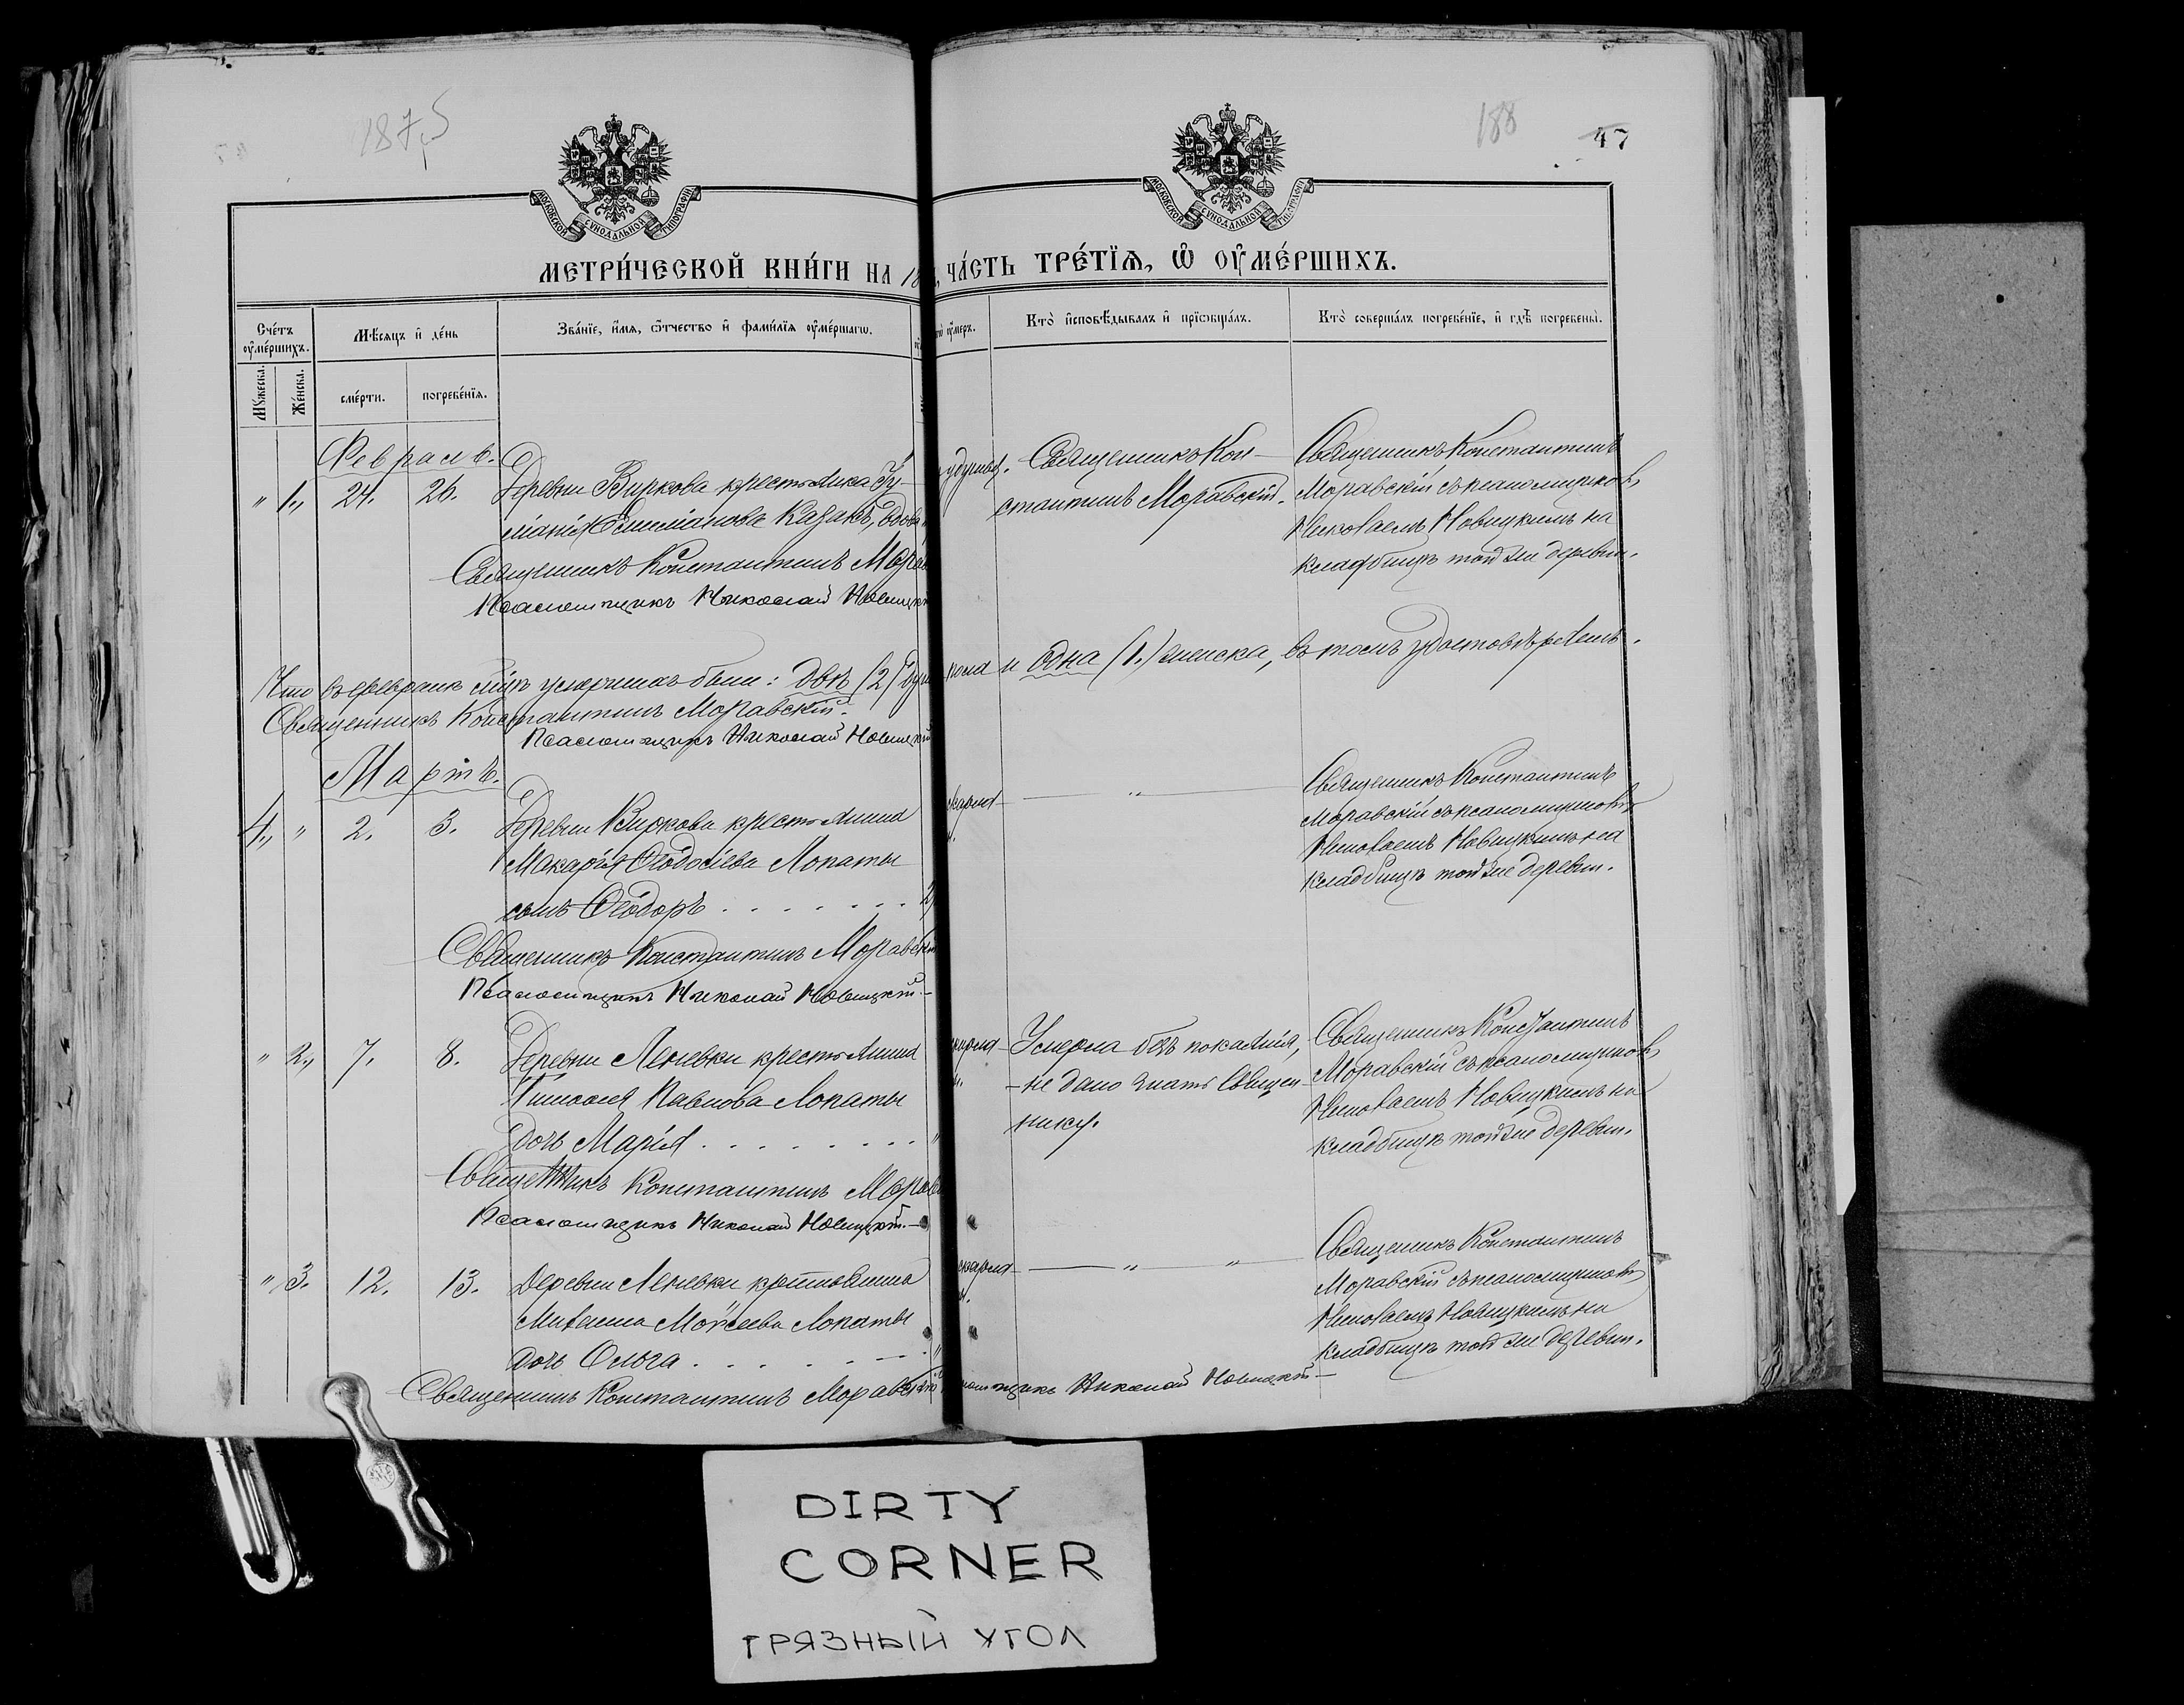 1875
188
47
МОСКОВСКОЙ СѴНОДАЛЬНОЙ ТИПОГРАФІИ
МОСКОВСКОЙ СѴНОДАЛЬНОЙ ТИПОГРАФІИ
МЕТРИ́ЧЕСКОЙ КНИ́ГИ НА 18
ЧА́СТЬ ТРЕ́ТЇѦ, Ѡ҆ ОУ҆МЕ́РШИХЪ.
Сче́тъ оу҆ме́ршихъ.
Мѣ́сяцъ и҆ де́нь
Зва́нїе, и҆́мя, ѻ҆́тчество и҆ фами́лїя оу҆ме́ршагѡ.
оу҆́меръ.
Кто̀ и҆сповѣ́дывалъ и҆ прїѡбща́лъ.
Кто̀ соверша́лъ погребе́нїе, и҆ гдѣ̀ погребены̀.
Му́жеска.
Же́нска.
сме́рти.
погребе́нїя.
Февраль.
" 1., 24. 26. Деревни Виркова крестьянка
Казакъ, вдова
Священникъ Константинъ Морав
Псаломщикъ Николай Новицк
Священникъ Кон-
стантинъ Моравскій.
Священникъ Константинъ
Моравскій съ псаломщиком
Николаемъ Новицкимъ на
кладбищѣ той же деревни.
Что въ февралѣ сихъ умершихъ было: двѣ (2) душ
и одна (1.) женска, въ томъ удостовѣряемъ.
Священникъ Константинъ Моравскій.
Псаломщикъ Николай Новицкій
Мартъ.
4., " 2. 3. Деревни Виркова крестьянина
Макарія Ѳеодосіева Лопаты
сынъ Ѳеодоръ
Священникъ Константинъ Моравскі
Псаломщикъ Николай Новицкій.
"
Священникъ Константинъ
Моравскій съ псаломщиком
Николаемъ Новицкимъ на
кладбищѣ той же деревни.
" 2., 7. 8. Деревни Леневки крестьянина
Павлова Лопаты
дочь Марія
Священникъ Константинъ Морав
Псаломщикъ Николай Новицкій.
Умерла безъ покаянія,
не дано знать Священ-
нику.
Священникъ Константинъ
Моравскій съ псаломщиком
Николаемъ Новицкимъ на
кладбищѣ той же деревни.
" 3. 12. 13. Деревни Леневки крестьянина
Михаила Моисеева Лопаты
дочь Ольга
" "
Священникъ Константинъ
Моравскій съ псаломщиком
Николаемъ Новицкимъ на
кладбищѣ той же деревни.
Священникъ Константинъ Моравскій
Николай Новицкій
DIRTY
CORNER
ГРЯЗНЫЙ УГОЛ